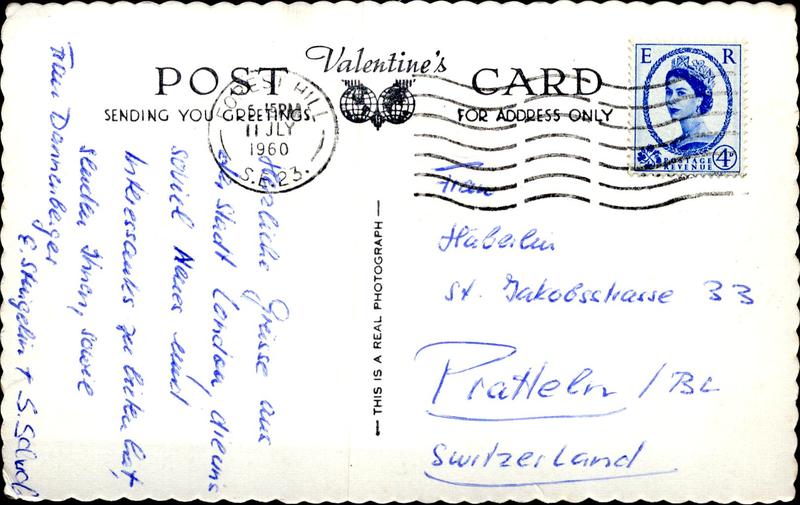 Valentine's
POST CARD
SENDING YOU GREETINGS.
FOR ADDRESS ONLY
FOREST HILL
5.15PM
11 JLY
1960
S.E.23.
E R
POSTAGE
REVENUE
4D
Herzliche Grüsse aus
der Stadt London, die uns
soviel Neues und
Interessantes zu bieten hat,
senden Ihnen, sowie
Frau Dannenberger
E. Stingelin + S.
THIS IS A REAL PHOTOGRAPH
Frau
Häberlin
St. Jakobsstrasse 33
Pratteln / BL
Switzerland